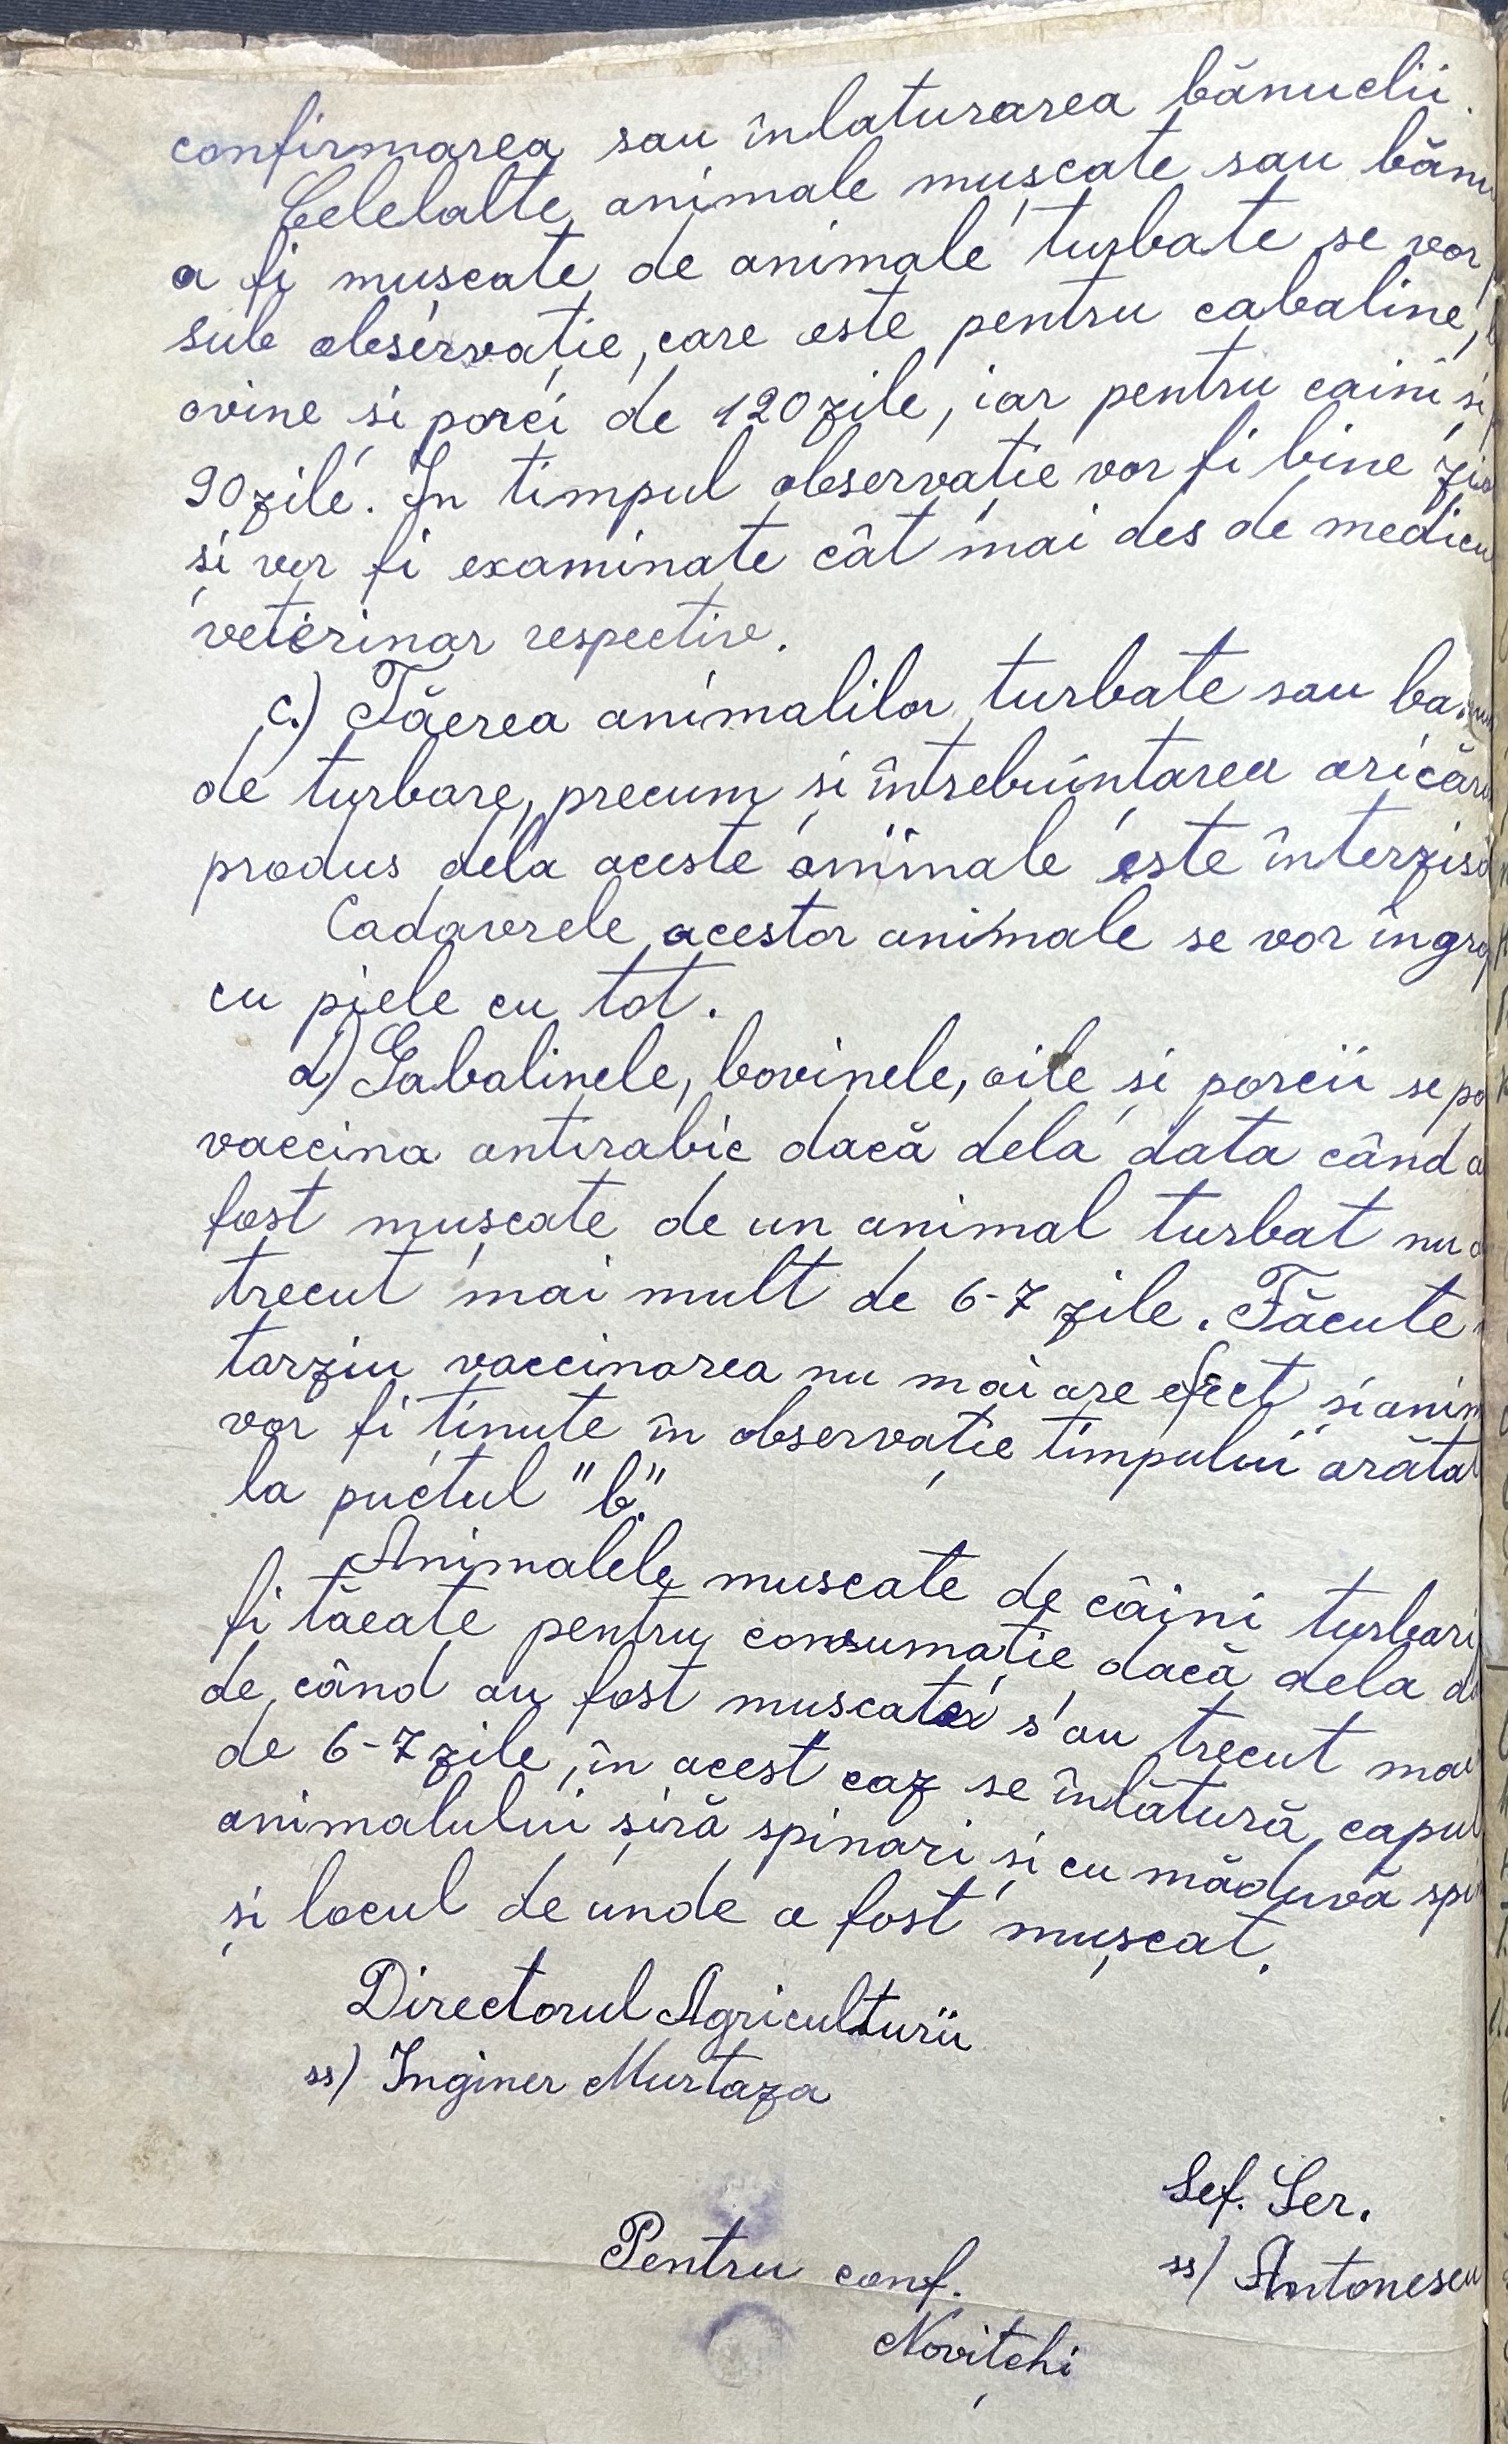 confirmarea sau înlaturarea bănuelii.
Celelalte animale mușcate sau bănu
a fi mușcate de animale turbate se vor
sub observație, care este pentru cabaline,
ovine si porci de 120 zile, iar pentru caini si
90 zile. In timpul observație vor fi bine
și vor fi examinate cât mai des de medicu
veterinar respectiv.
c.) Tăerea animalilor turbate sau ba
de turbare, precum și întrebuințarea oricăru
produs dela aceste animale este înterzisă
Cadavrele acestor animale se vor îngro
cu piele cu tot.
d) Cabalinele, bovinele, oile și porcii se po
vaccina antirabic dacă dela data când a
fost mușcate de un animal turbat nu a
trecut mai mult de 6-7 zile. Făcute
tarziu vaccinarea nu mai are efect și anim
vor fi ținute în observație timpului arătat
la puctul "b."
Animalele muscate de câini turbari
fi tăeate pentru consumație dacă dela d
de când au fost muscate s'au trecut mai
de 6-7 zile, în acest caz se înlătură capul
animalului șiră spinari și cu măduvă spi
și locul de unde a fost mușcat.
Directorul Agriculturii
ss) Inginer Murtaza
Sef. Ser.
ss) Antonescu
Pentru conf.
Novițchi